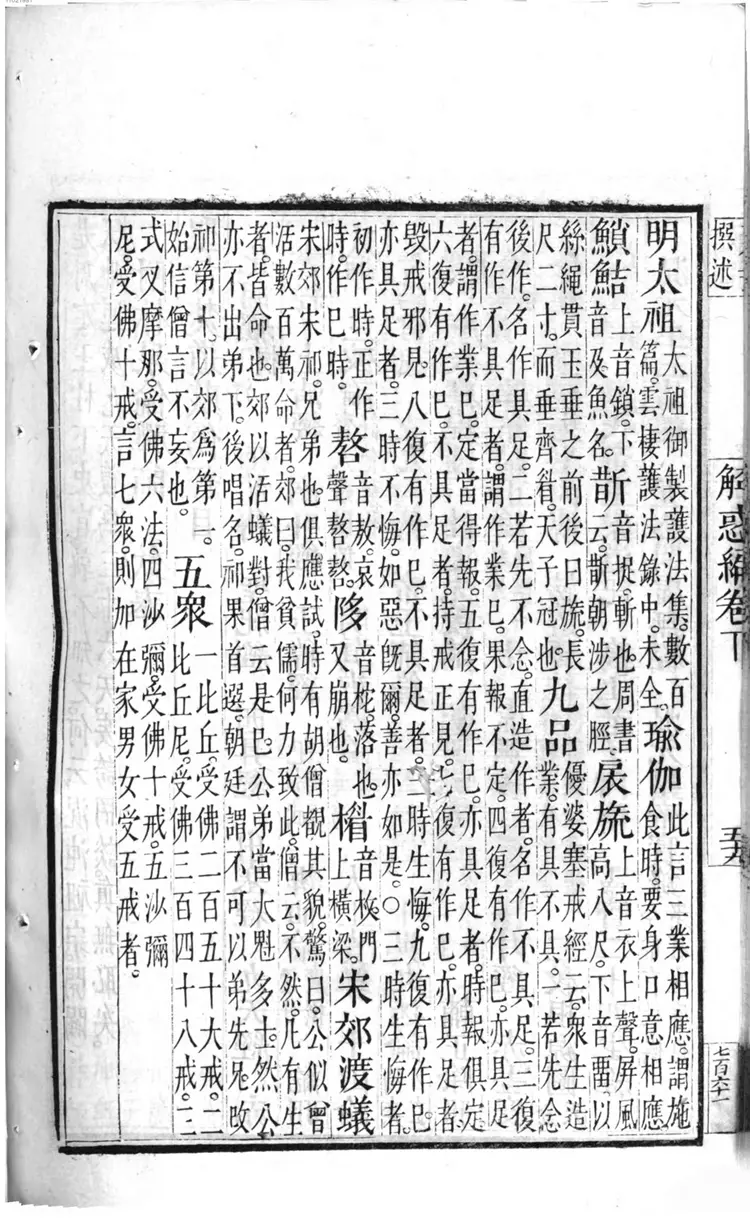 撰述
解惑編卷下
五六
七百六十一
明太祖太祖御製護法集。數百
篇。雲棲護法錄中。未全。瑜伽此言三業相應。謂施
食時。要身口意相應
鮚上音鎖。下
音及。魚名。斮音捉。斬也。周書
云。斮朝涉之脛。扆旒上音衣上聲。屏風
高八尺。下音畱。以
絲繩貫玉垂之前後曰旒。長
尺二寸。而垂齊肩。天子冠也。九品優婆塞戒經云。衆生造
業。有具不具。一若先念
後作。名作具足。二若先不念。直造作者。名作不具足。三復
有作不具足者。謂作業已。果報不定。四復有作已。亦具足
者。謂作業已。定當得報。五復有作已。亦具足者。時報俱定。
六復有作已。不具足者。持戒正見。七復有作已。亦具足者。
毀戒邪見。八復有作已。不具足者。三時生悔。九復有作已。
亦具足者。三時不悔。如惡旣爾。善亦如是。○三時生悔者。
初作時。正作
時。作已時。嗸音敖。哀
聲嗸嗸。陊音枕。落也。
又崩也。楣音梭。門
上橫梁。宋郊渡蟻
宋郊宋祁。兄弟也。俱應試。時有胡僧覩其貌。驚曰。公似曾
活數百萬命者。郊曰。我貧儒。何力致此。僧云。不然。凡有生
者。皆命也。郊以活蟻對。僧云是已。公弟當大魁多士。然公
亦不出弟下。後唱名。祁果首選。朝廷謂不可以弟先兄。改
祁第十。以郊爲第一。
始信僧言不妄也。五衆一比丘。受佛二百五十大戒。二
比丘尼。受佛三百四十八戒。三
式叉摩那。受佛六法。四沙彌。受佛十戒。五沙彌
尼。受佛十戒。言七衆。則加在家男女受五戒者。